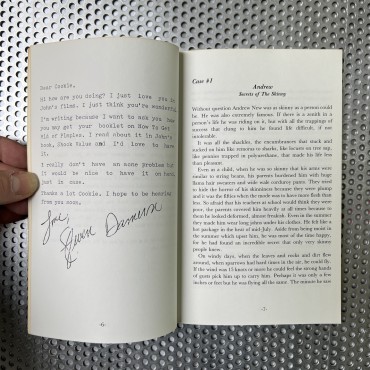 Dear Cookie,
Hi how are you doing? I just love you in
John's films. I just think you're wonderful.
I'm writing because I want to ask you how
you may get your booklet on How To Get
Rid of Pimples. I read about it in John's
book, Shock Value and I'd love to have
it.
I really don't have an acne problem but
it would be nice to have it on hand
just in case.
Thanks a lot Cookie. I hope to be hearing
from you soon.
Love,
Gwen Dameron
-6-
Case #1
Andrew
Secrets of The Skinny
Without question Andrew New was as skinny as a person could
be. He was also extremely famous. If there is a zenith in a
person's life he was riding on it, but with all the trappings of
success that clung to him he found life difficult, if not
intolerable.
It was all the shackles, the encumbrances that stuck and
sucked on him like remoras to sharks, like resins on tree sap,
like peonies trapped in polyurethane, that made his life less
than pleasant.
Even as a child, when he was so skinny that his arms were
similar to string beans, his parents burdened him with huge
llama hair sweaters and wide wale corduroy pants. They tried
to hide the horror of his skinniness because they were plump
and it was the fifties when the mode was to have meat and flesh
too. So afraid that his teachers at school would think they were
poor, the parents covered him heavily in all these because to
them he looked deformed, almost freakish. Even in the summer
they made him wear long johns under his clothes. He felt like a
hot package in the heat of mid-July. Aside from being most in
the summer which upset him, he was more of the time happy,
for he had found an incredible secret that only very skinny
people knew.
On windy days, when the leaves and rocks and dirt flew
around, when sparrows had hard times in the air, he could fly.
If the wind was 15 knots or more he could feel the strong hands
of gusts pick him up to carry him. Perhaps it was only a few
inches or feet but he was flying all the same. The minute he saw
-7-